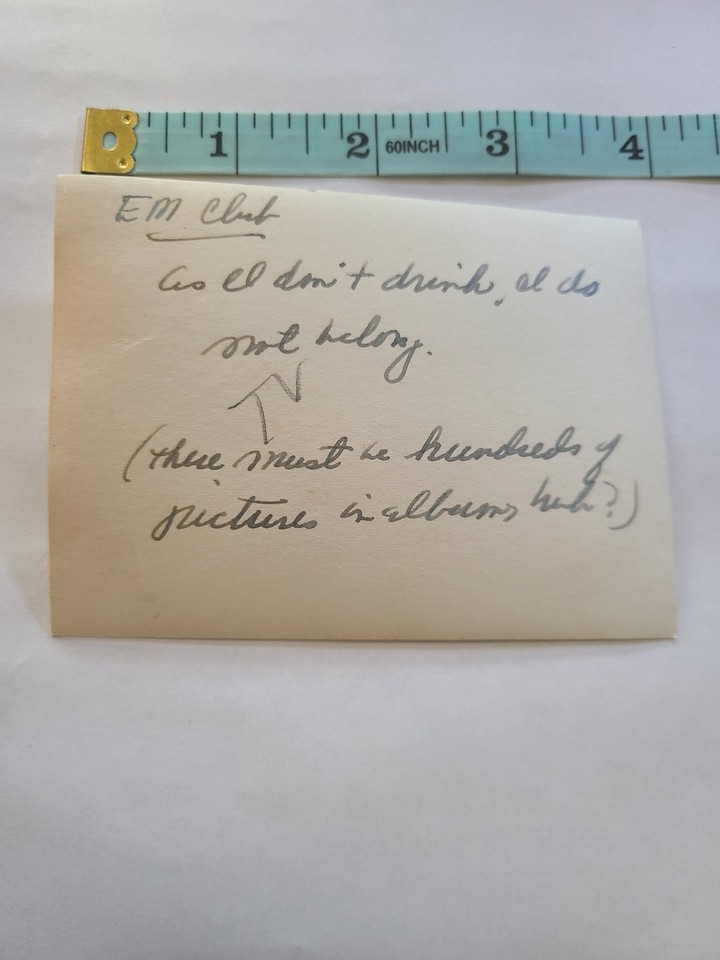 1 2 60INCH 3 4
EM Club
As I don't drink, I do
not belong.
TV
(there must be hundreds of
pictures in albums huh?)